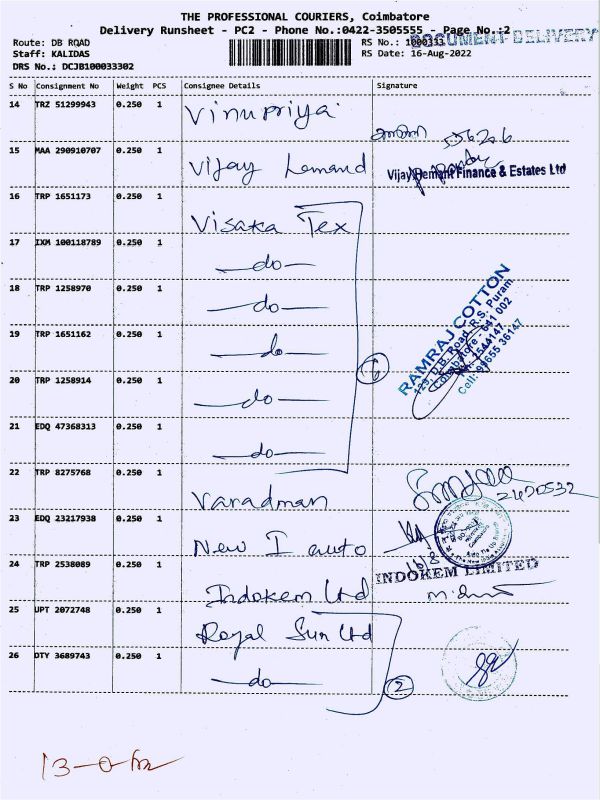 THE PROFESSIONAL COURIERS, Coimbatore
Delivery Runsheet - PC2 - Phone No.:0422-3505555 Page No.:2
DOCUMENT DELIVERY
Route: DB RQAD
RS No.: 1000333
Staff: KALIDAS
RS Date: 16-Aug-2022
DRS No.: DCJB100033302
S No Consignment No Weight PCS Consignee Details Signature
14 TRZ 51299943 0.250 1 Vinupriya
556206
15 MAA 290910707 0.250 1 Vijay Hemand
Vijay Hemant Finance & Estates Ltd
16 TRP 1651173 0.250 1 Visaka Tex
17 IXM 100118789 0.250 1 do
18 TRP 1258970 0.250 1 do
19 TRP 1651162 0.250 1 do
6
RAMRAJ COTTON
129, D.B. Road, R.S. Puram,
Coimbatore - 641 002
2544147
Cell: 99655 36147
20 TRP 1258914 0.250 1 do
21 EDQ 47368313 0.250 1 do
22 TRP 8275768 0.250 1 Varadman
2470532
23 EDQ 23217938 0.250 1 New I auto
16/8
24 TRP 2538089 0.250 1 Indokem Ltd
INDOKEM LIMITED
25 UPT 2072748 0.250 1 Royal Sun Ltd
26 DTY 3689743 0.250 1 do
2